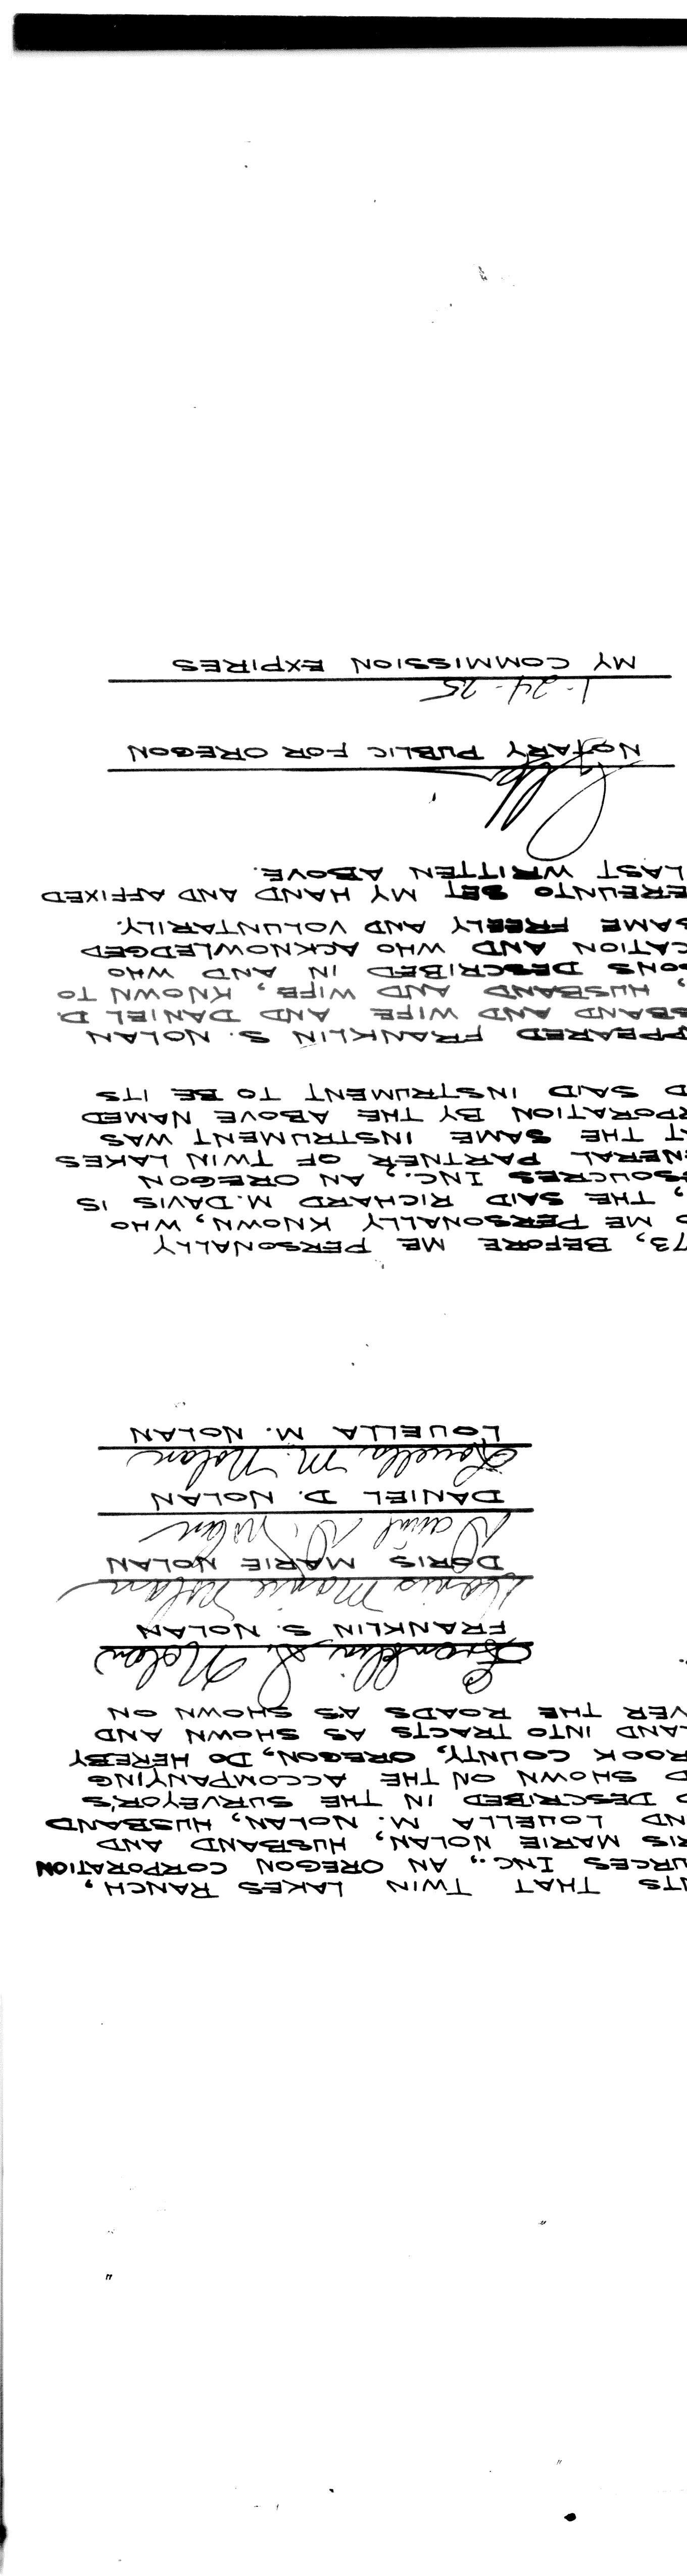 TS THAT TWIN LAKES RANCH,
URCES INC., AN OREGON CORPORATION
RIS MARIE NOLAN, HUSBAND AND
ND LOUELLA M. NOLAN, HUSBAND
D DESCRIBED IN THE SURVEYOR'S
D SHOWN ON THE ACCOMPANYING
ROOK COUNTY, OREGON, DO HEREBY
LAND INTO TRACTS AS SHOWN AND
VER THE ROADS AS SHOWN ON
Franklin S. Nolan
FRANKLIN S. NOLAN
Doris Marie Nolan
DORIS MARIE NOLAN
Daniel D. Nolan
DANIEL D. NOLAN
Louella M. Nolan
LOUELLA M. NOLAN
73, BEFORE ME PERSONALLY
O ME PERSONALLY KNOWN, WHO
, THE SAID RICHARD M. DAVIS IS
SOUCRES INC., AN OREGON
ENERAL PARTNER OF TWIN LAKES
T THE SAME INSTRUMENT WAS
RPORATION BY THE ABOVE NAMED
D SAID INSTRUMENT TO BE ITS
PPEARED FRANKLIN S. NOLAN
SBAND AND WIFE AND DANIEL D.
, HUSBAND AND WIFE, KNOWN TO
SONS DESCRIBED IN AND WHO
CATION AND WHO ACKNOWLEDGED
SAME FREELY AND VOLUNTARILY.
EREUNTO SET MY HAND AND AFFIXED
LAST WRITTEN ABOVE.
NOTARY PUBLIC FOR OREGON
1-24-75
MY COMMISSION EXPIRES